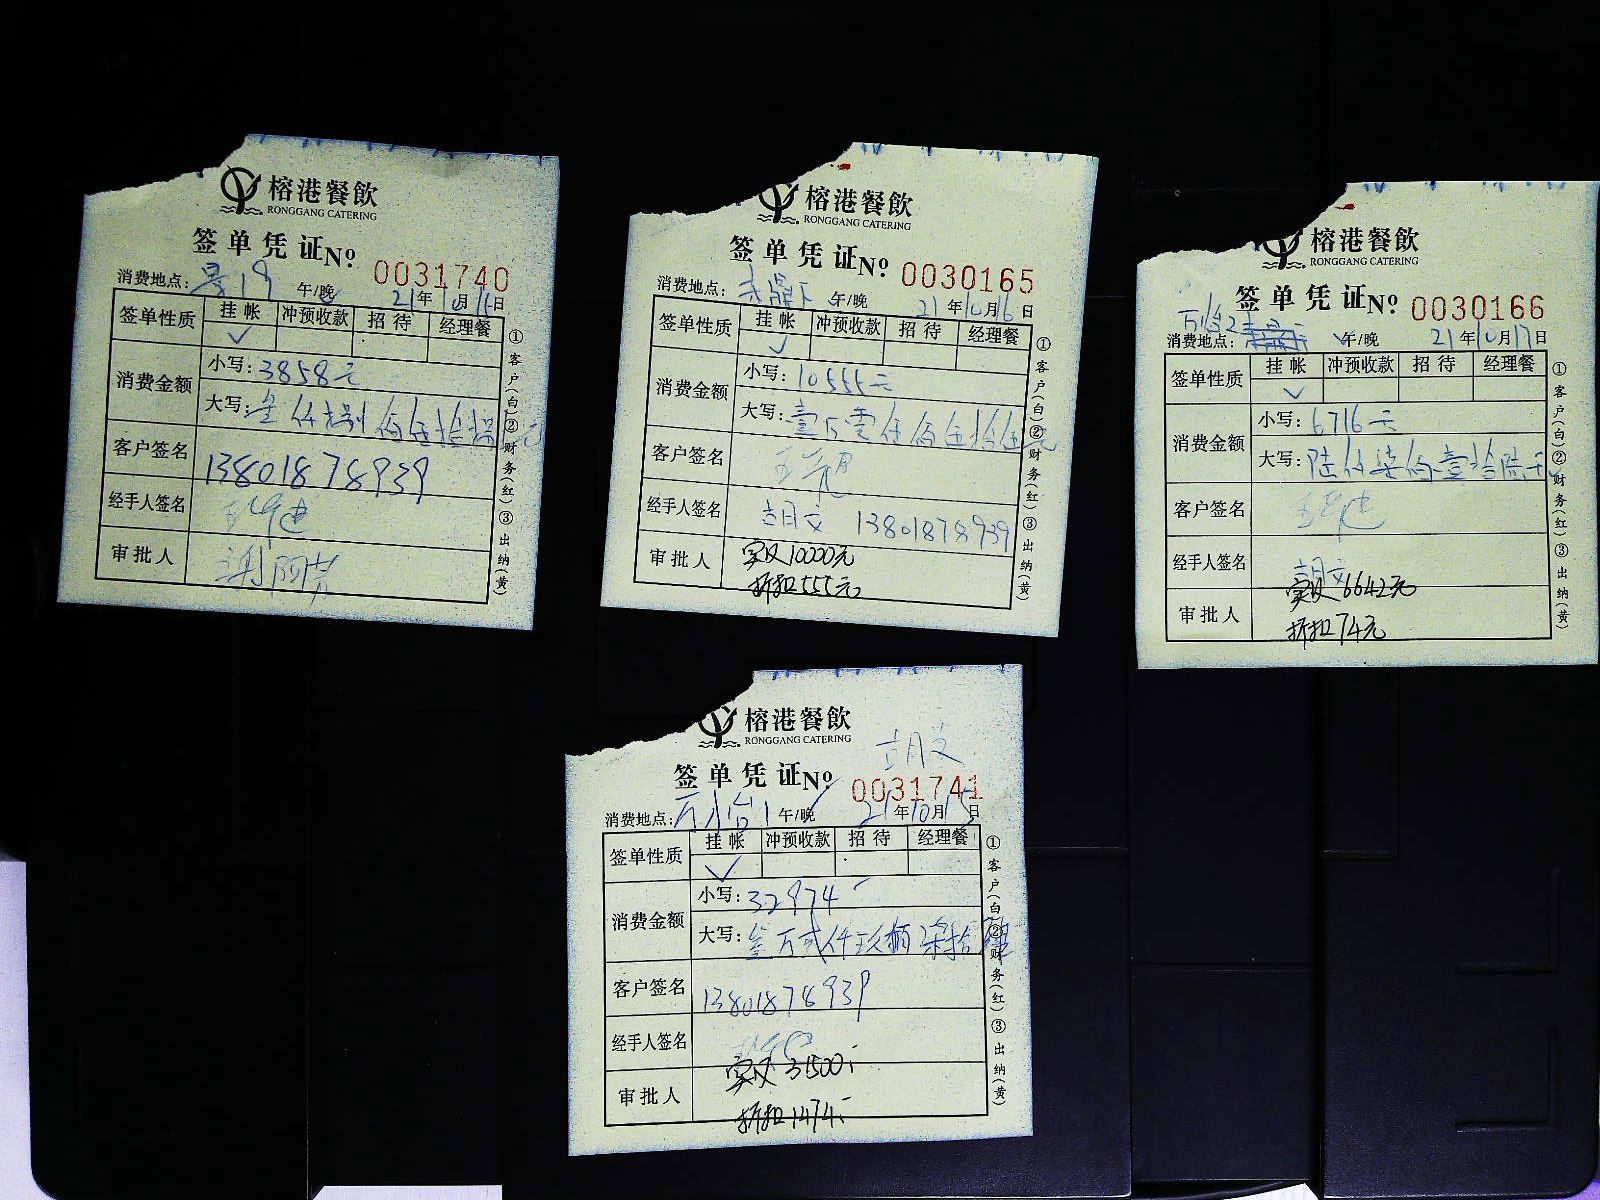 榕港餐飲
RONGGANG CATERING
签单凭证 Nº 0031740
消费地点: 午/晚 21年10月16日
签单性质 挂帐 冲预收款 招待 经理餐
✓
消费金额 小写: 3858元
大写: 叁仟捌佰伍拾捌元
客户签名 13801878939
经手人签名
审批人
①客户(白)②财务(红)③出纳(黄)
榕港餐飲
RONGGANG CATERING
签单凭证 Nº 0030165
消费地点: 午/晚 21年10月16日
签单性质 挂帐 冲预收款 招待 经理餐
✓
消费金额 小写: 10555元
大写: 壹万零伍佰伍拾伍元
客户签名
经手人签名 胡文 13801878939
审批人 实收10000元
折扣555元
①客户(白)②财务(红)③出纳(黄)
榕港餐飲
RONGGANG CATERING
签单凭证 Nº 0030166
消费地点: 午/晚 21年10月17日
签单性质 挂帐 冲预收款 招待 经理餐
✓
消费金额 小写: 6716元
大写: 陆仟柒佰壹拾陆元
客户签名
经手人签名 胡文
实收6642元
审批人 折扣74元
①客户(白)②财务(红)③出纳(黄)
榕港餐飲
RONGGANG CATERING
胡文
签单凭证 Nº 0031741
消费地点: 午/晚 21年10月15日
签单性质 挂帐 冲预收款 招待 经理餐
✓
消费金额 小写: 32974
大写: 叁万贰仟玖佰柒拾肆
客户签名 13801878939
经手人签名
实收31500
审批人 折扣1474
①客户(白)②财务(红)③出纳(黄)